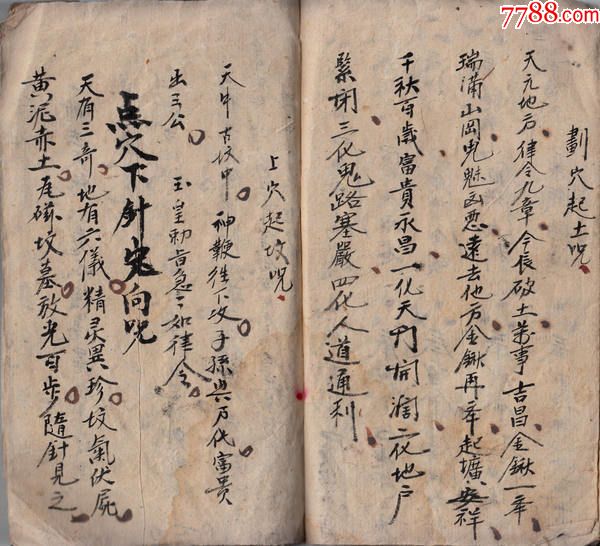 7788.com
中国收藏热线
劃穴起土咒
天元地方律令九章今辰破土万事吉昌金鍬一舉
瑞滿山岡鬼魅凶惡遠去他方金鍬再舉起壙安祥
千秋百歲富貴永昌一化天门開濶二化地户
緊閉三化鬼路塞嚴四化人道通利
上穴起坟咒
天牛古坟中神鞭往下攻子孫興万代富贵
出三公 玉皇勅旨急〻如律令
点穴下針定向咒
天有三奇地有六儀精灵異珍坟氣伏屍
黄泥赤土瓦磁坟墓放光百步隨針見之